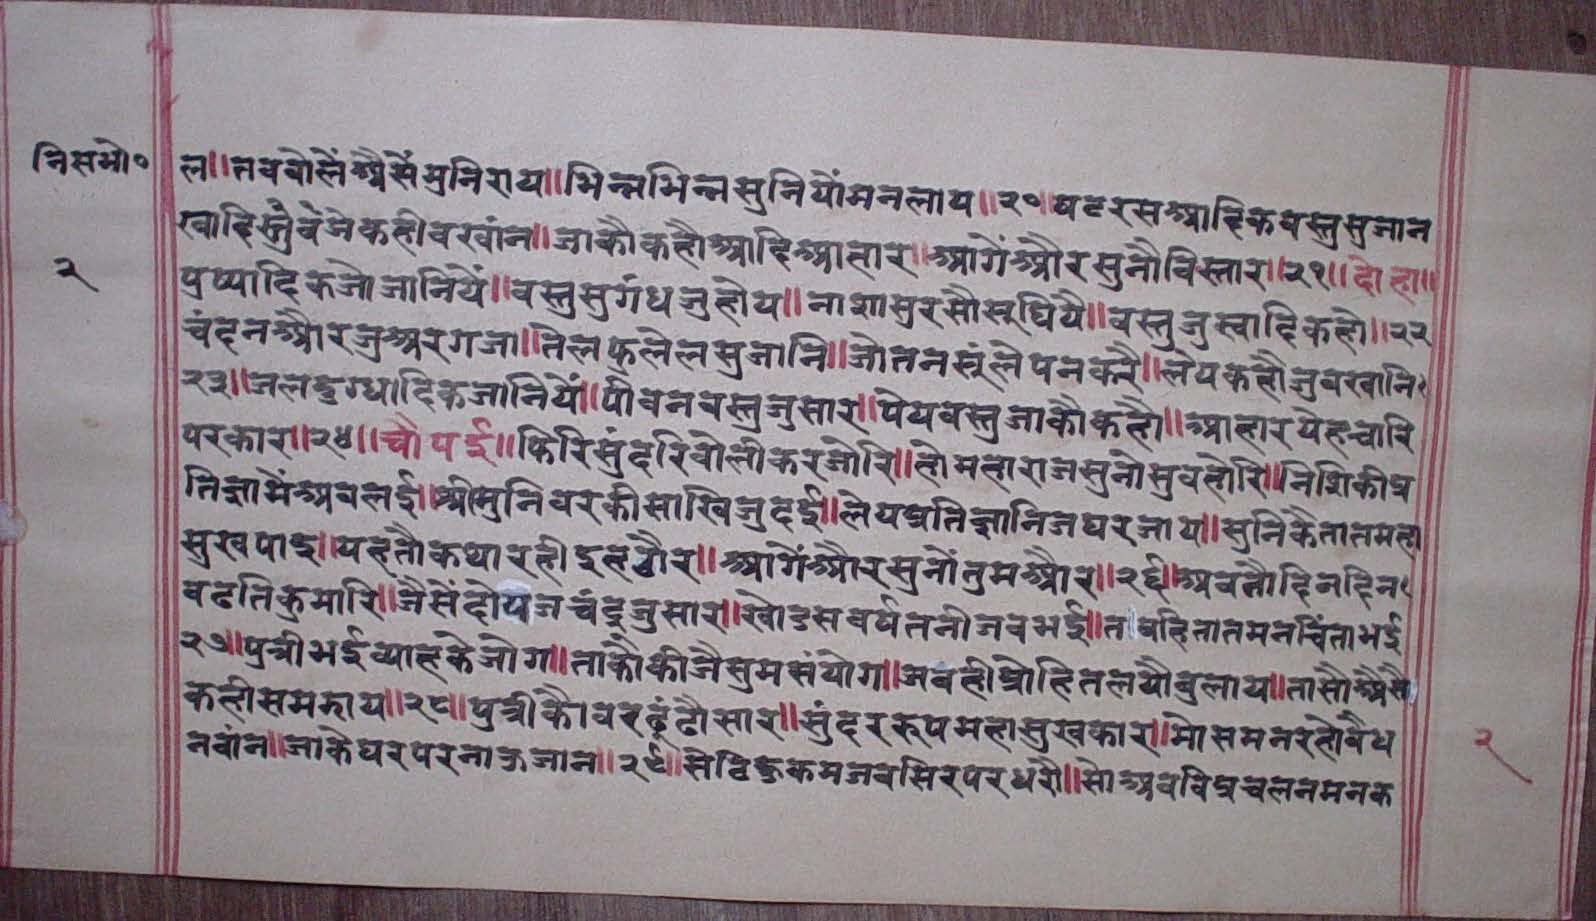 निसभो०
ल॥तबबोलेंअैसेंमुनिराय॥भिन्नभिन्नसुनियोंमनलाय॥२०॥षटरसआदिकवस्तुसुजान
स्वादिस्तुवेजेकहीवखांन॥जाकौकहौआदिआहार॥आगेंऔरसुनौविस्तार॥२१॥दोहा॥
२
पुष्पादिकजोजानियें॥वस्तुसुगंधजुहोय॥नाशासुरसौसूघियै॥वस्तुजुस्वादिकहो॥२२
चंदनऔरजुअरगजा॥तेलफुलेलसुजानि॥जोतनसूंलेपनकरै॥लेपकहौजुवखानि
२३॥जलदुग्धादिकजानियें॥पीवनवस्तुजुसार॥पेयवस्तुजाकौकहौ॥आहारयेहचारि
परकार॥२४॥चौपई॥फिरिसुंदरिवोलीकरजोरि॥होमहाराजसुनोसुवहोरि॥निशिकीप्र
तिज्ञामैंअबलई॥श्रीमुनिवरकीसाखिजुदई॥लेयप्रतिज्ञानिजघरजाय॥सुनिकैतातमहा
सुखपाइ॥यहतौकथारहीइहठौर॥आगेंऔरसुनोंतुमऔर॥२६॥अबतौदिनदिन
वढतिकुमारि॥जैसेंदोयजचंद्रजुसार॥खोडसवर्षतनीजबभई॥तबहितातमनचिंताभई
२७॥पुत्रीभईव्याहकेजोग॥ताकौकीजैसुभसंयोग॥जबहीप्रोहितलयौबुलाय॥तासौअैसै
कहीसमझाय॥२८॥पुत्रीकैावरढूंढौसार॥सुंदररूपमहासुखकार॥मोसमनरहोवैध
नवांन॥जाकेघरपरनाऊजान॥२९॥सेठिहुकमजबसिरपरधरौ॥सोअबविप्रचलनमनक
२